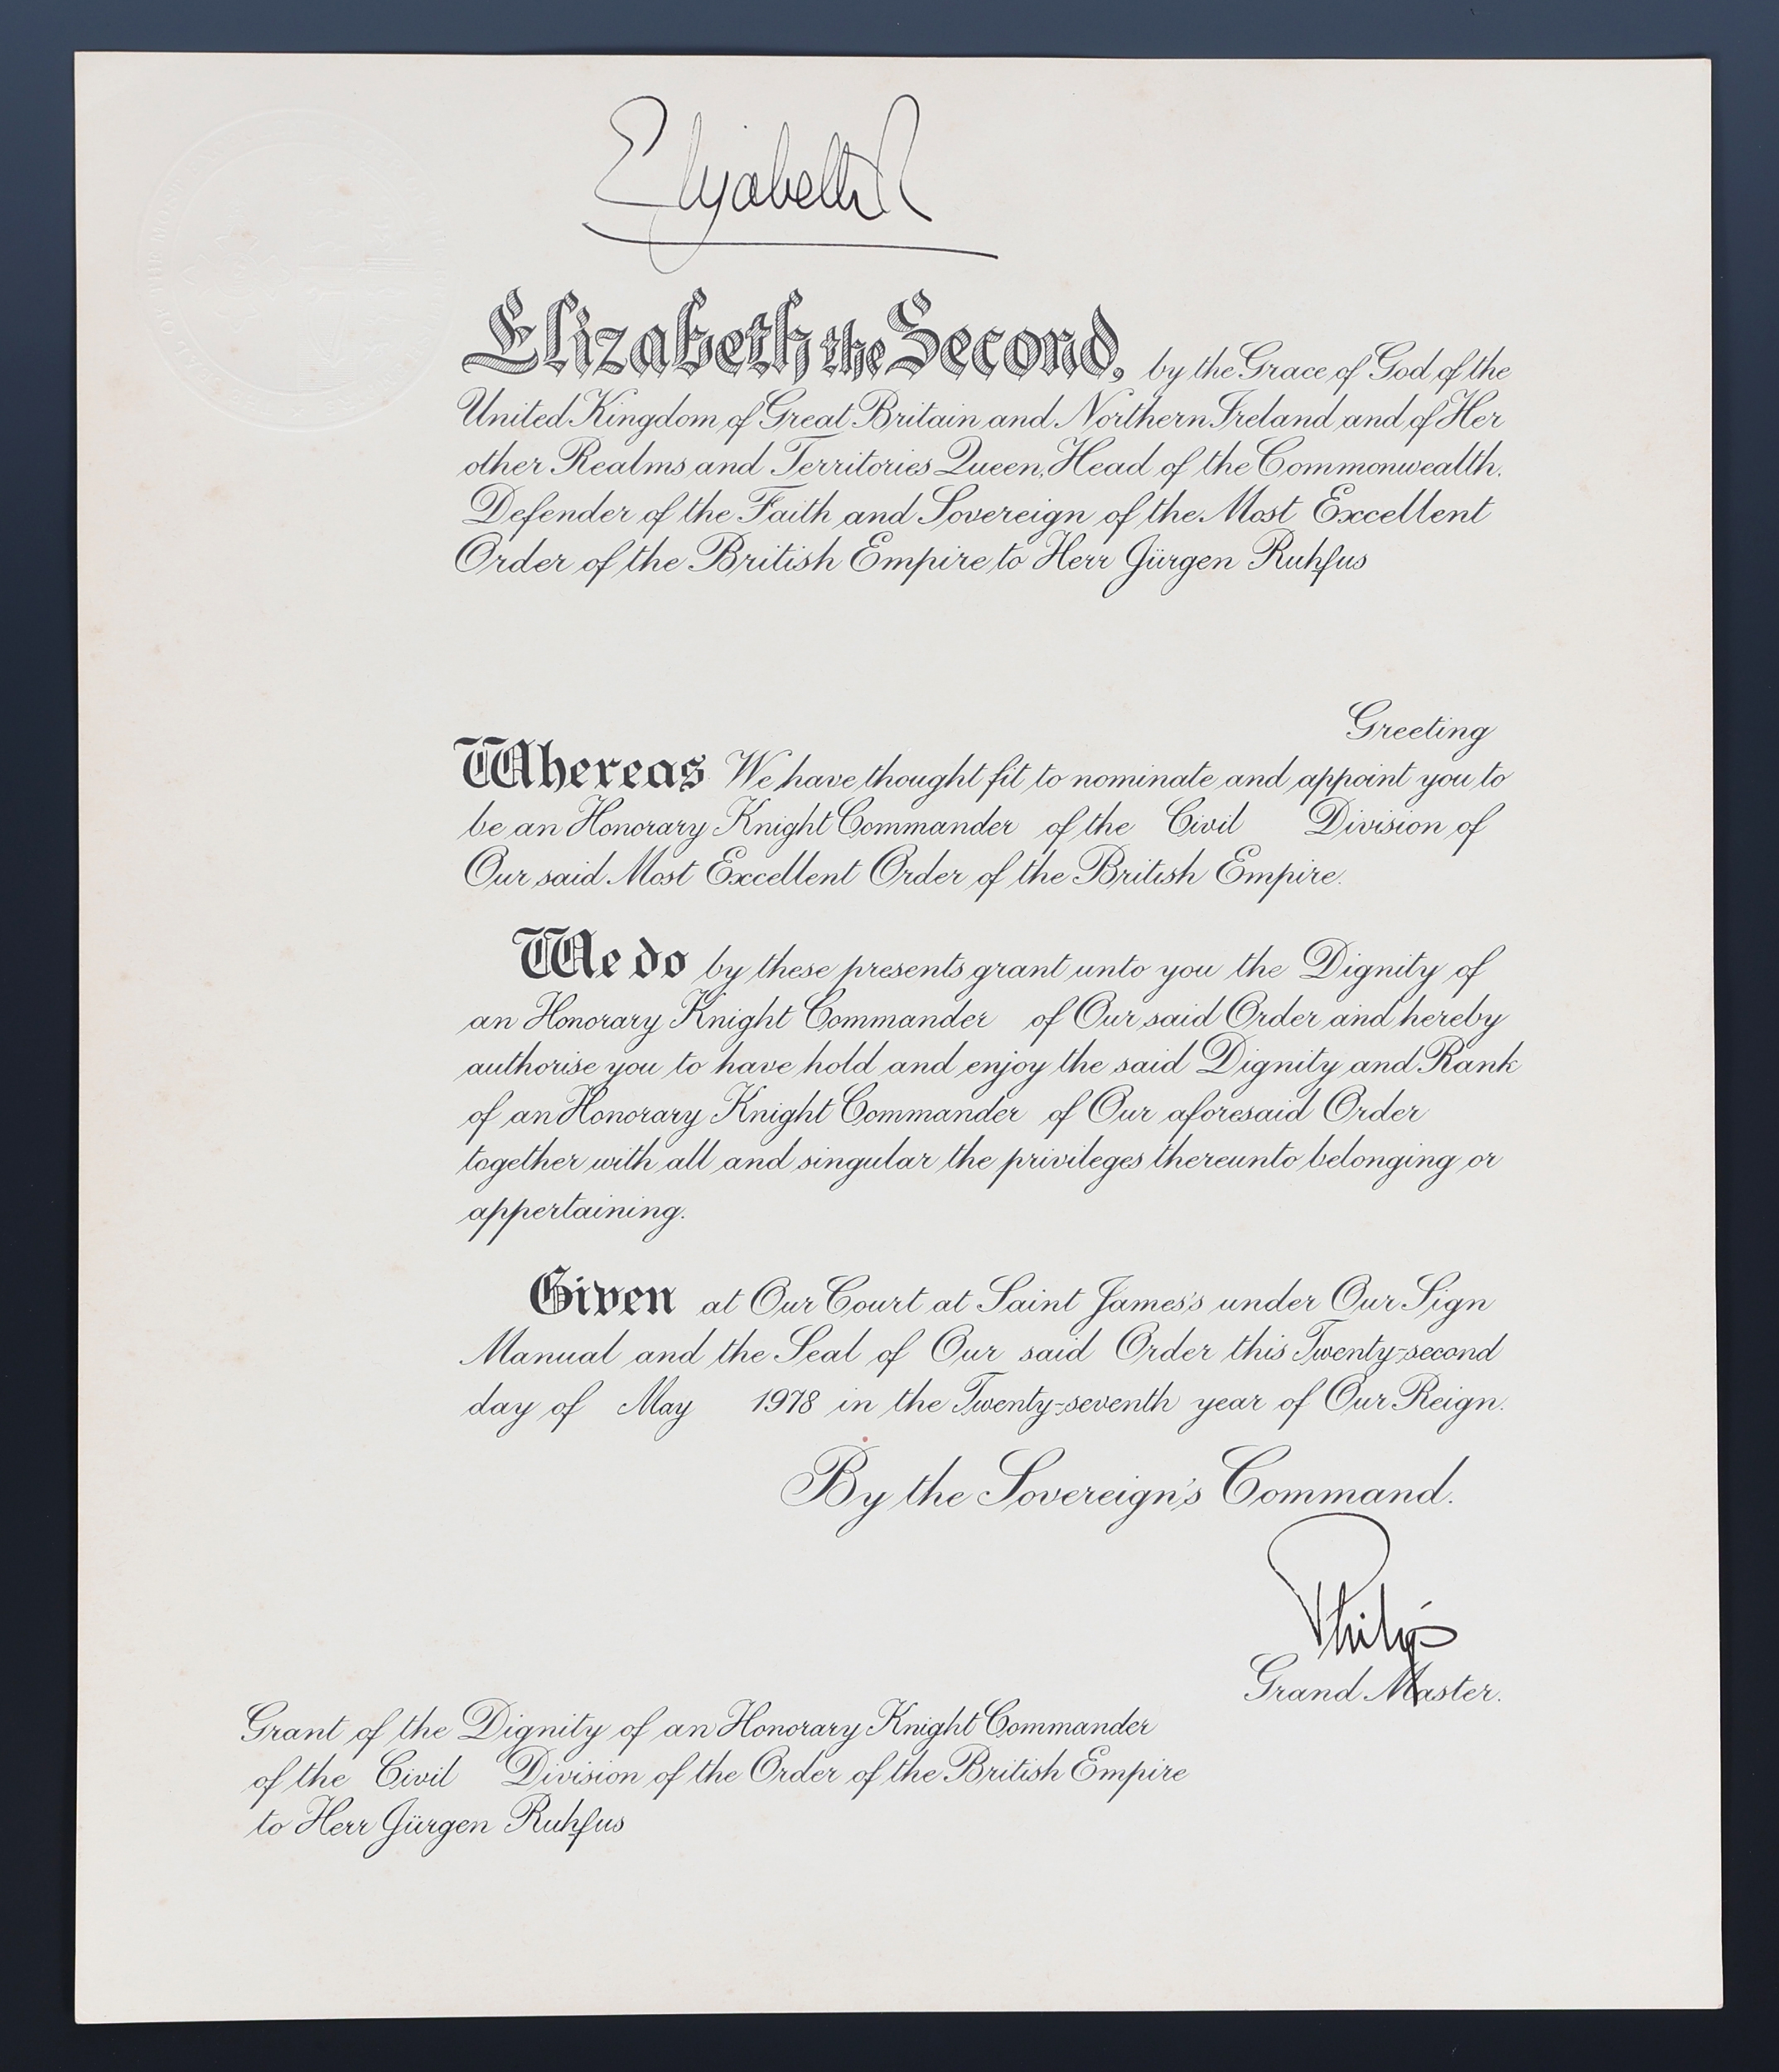 Elizabeth R
Elizabeth the Second, by the Grace of God of the
United Kingdom of Great Britain and Northern Ireland and of Her
other Realms and Territories Queen, Head of the Commonwealth.
Defender of the Faith and Sovereign of the Most Excellent
Order of the British Empire to Herr Jürgen Ruhfus
Greeting
Whereas We have thought fit to nominate and appoint you to
be an Honorary Knight Commander of the Civil Division of
Our said Most Excellent Order of the British Empire.
We do by these presents grant unto you the Dignity of
an Honorary Knight Commander of Our said Order and hereby
authorise you to have hold and enjoy the said Dignity and Rank
of an Honorary Knight Commander of Our aforesaid Order
together with all and singular the privileges thereunto belonging or
appertaining.
Given at Our Court at Saint James's under Our Sign
Manual and the Seal of Our said Order this Twenty-second
day of May 1978 in the Twenty-seventh year of Our Reign.
By the Sovereign's Command.
Philip
Grand Master.
Grant of the Dignity of an Honorary Knight Commander
of the Civil Division of the Order of the British Empire
to Herr Jürgen Ruhfus